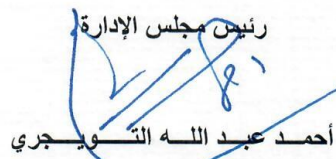 رئيس مجلس الإدارة
أحمد عبد الله التويجري